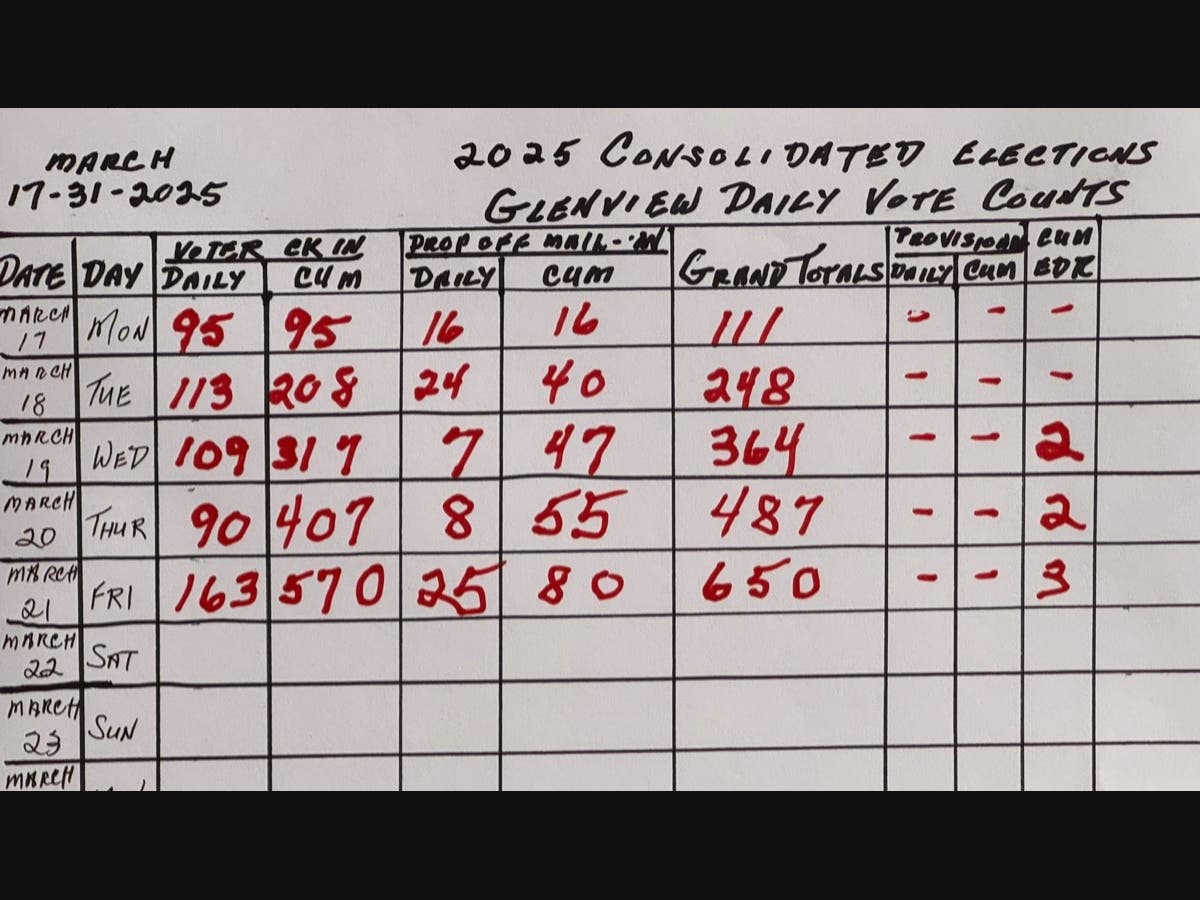 MARCH
17-31-2025
2025 CONSOLIDATED ELECTIONS
GLENVIEW DAILY VOTE COUNTS
DATE DAY VOTER CK IN DAILY CUM DROP OFF MAIL-IN DAILY CUM GRAND TOTALS PROVISIONAL DAILY CUM CUM EDR
MARCH 17 MON 95 95 16 16 111 - - -
MARCH 18 TUE 113 208 24 40 248 - - -
MARCH 19 WED 109 317 7 47 364 - - 2
MARCH 20 THUR 90 407 8 55 487 - - 2
MARCH 21 FRI 163 570 25 80 650 - - 3
MARCH 22 SAT
MARCH 23 SUN
MARCH